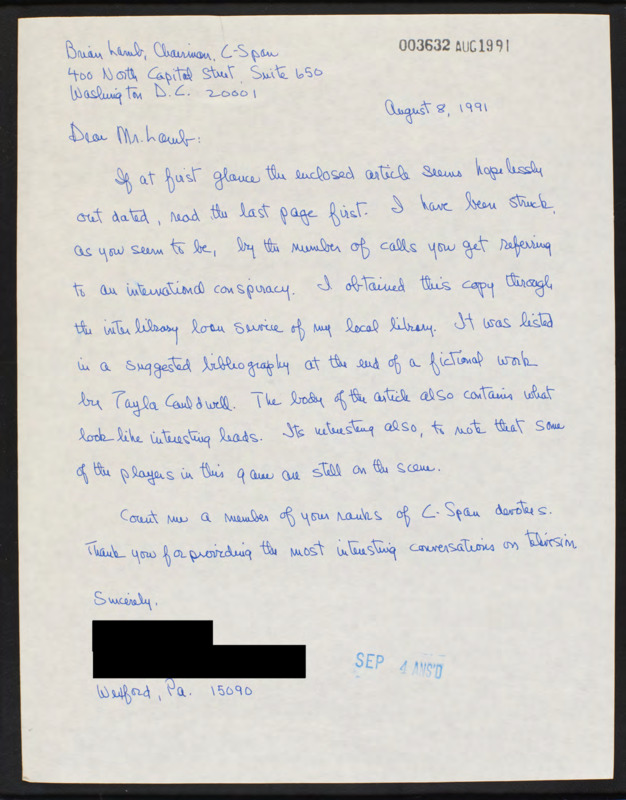 003632 AUG 1991
Brian Lamb, Chairman, C-Span
400 North Capital Street, Suite 650
Washington D.C. 20001
August 8, 1991
Dear Mr. Lamb:
If at first glance the enclosed article seems hopelessly
out dated, read the last page first. I have been struck,
as you seem to be, by the number of calls you get referring
to an international conspiracy. I obtained this copy through
the inter library loan service of my local library. It was listed
in a suggested bibliography at the end of a fictional work
by Tayla Cauldwell. The body of the article also contains what
look like interesting leads. Its interesting also, to note that some
of the players in this game are still on the scene.
Count me a member of your ranks of C-Span devotees.
Thank you for providing the most interesting conversations on television
Sincerely,
SEP 4 ANS'D
Wexford, Pa. 15090